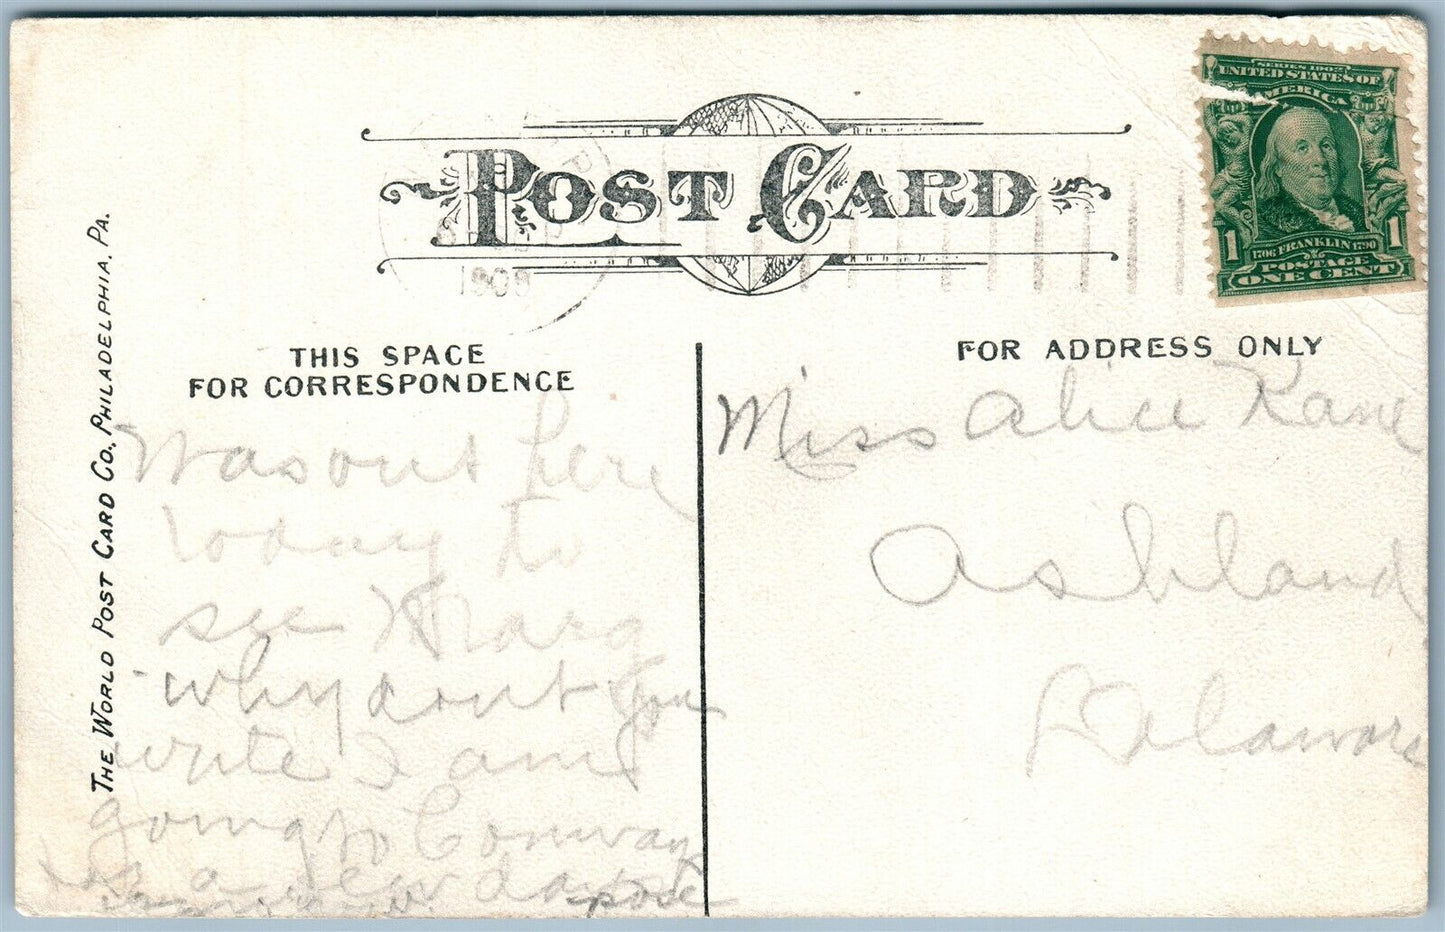 POST CARD
1908
SERIES 1902
UNITED STATES OF
AMERICA
1 1
1706 FRANKLIN 1790
POSTAGE
ONE CENT
THE WORLD POST CARD CO., PHILADELPHIA, PA.
THIS SPACE
FOR CORRESPONDENCE
FOR ADDRESS ONLY
Was out here
today to
see
why dont you
write I am
going to Conway
for a few days
Miss Alice Kane
Ashland
Delaware